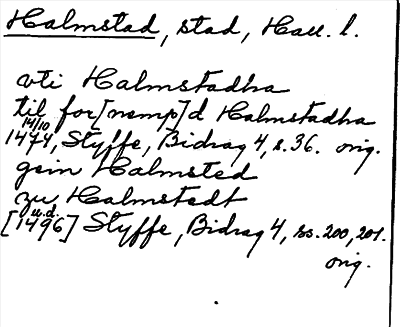 Halmstad, stad, Hall. l.
vti Halmstadha
til for[nemp]d Halmstadha
14/10
1474, Styffe, Bidrag 4, s. 36. orig.
gein Halmsted
zu Halmstedt
u.d.
[1496] Styffe, Bidrag 4, ss. 200, 201.
orig.